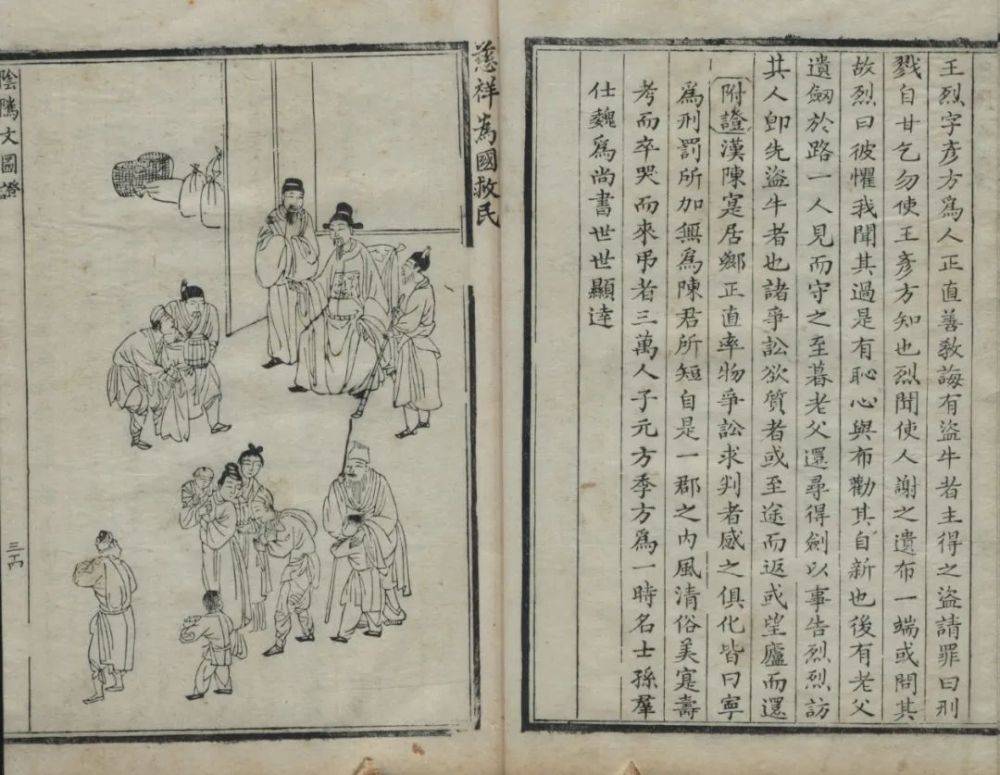 王烈字彥方爲人正直善敎誨有盜牛者主得之盜請罪曰刑
戮自甘乞勿使王彥方知也烈聞使人謝之遺布一端或問其
故烈曰彼懼我聞其過是有恥心與布勸其自新也後有老父
遺劒於路一人見而守之至暮老父還尋得劍以事告烈烈訪
其人卽先盜牛者也諸爭訟欲質者或至途而返或望廬而還
附證漢陳寔居鄉正直率物爭訟求判者感之俱化皆曰寧
爲刑罰所加無爲陳君所短自是一郡之內風清俗美寔壽
考而卒哭而來弔者三萬人子元方季方爲一時名士孫羣
仕魏爲尚書世世顯達
慈祥爲國救民
陰騭文圖證